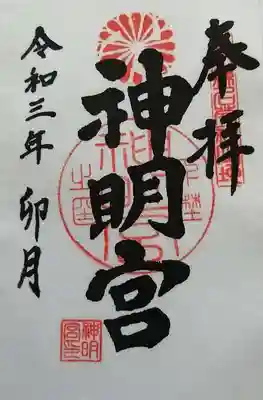 奉拝
神明宮
令和三年 卯月
神明
宮印